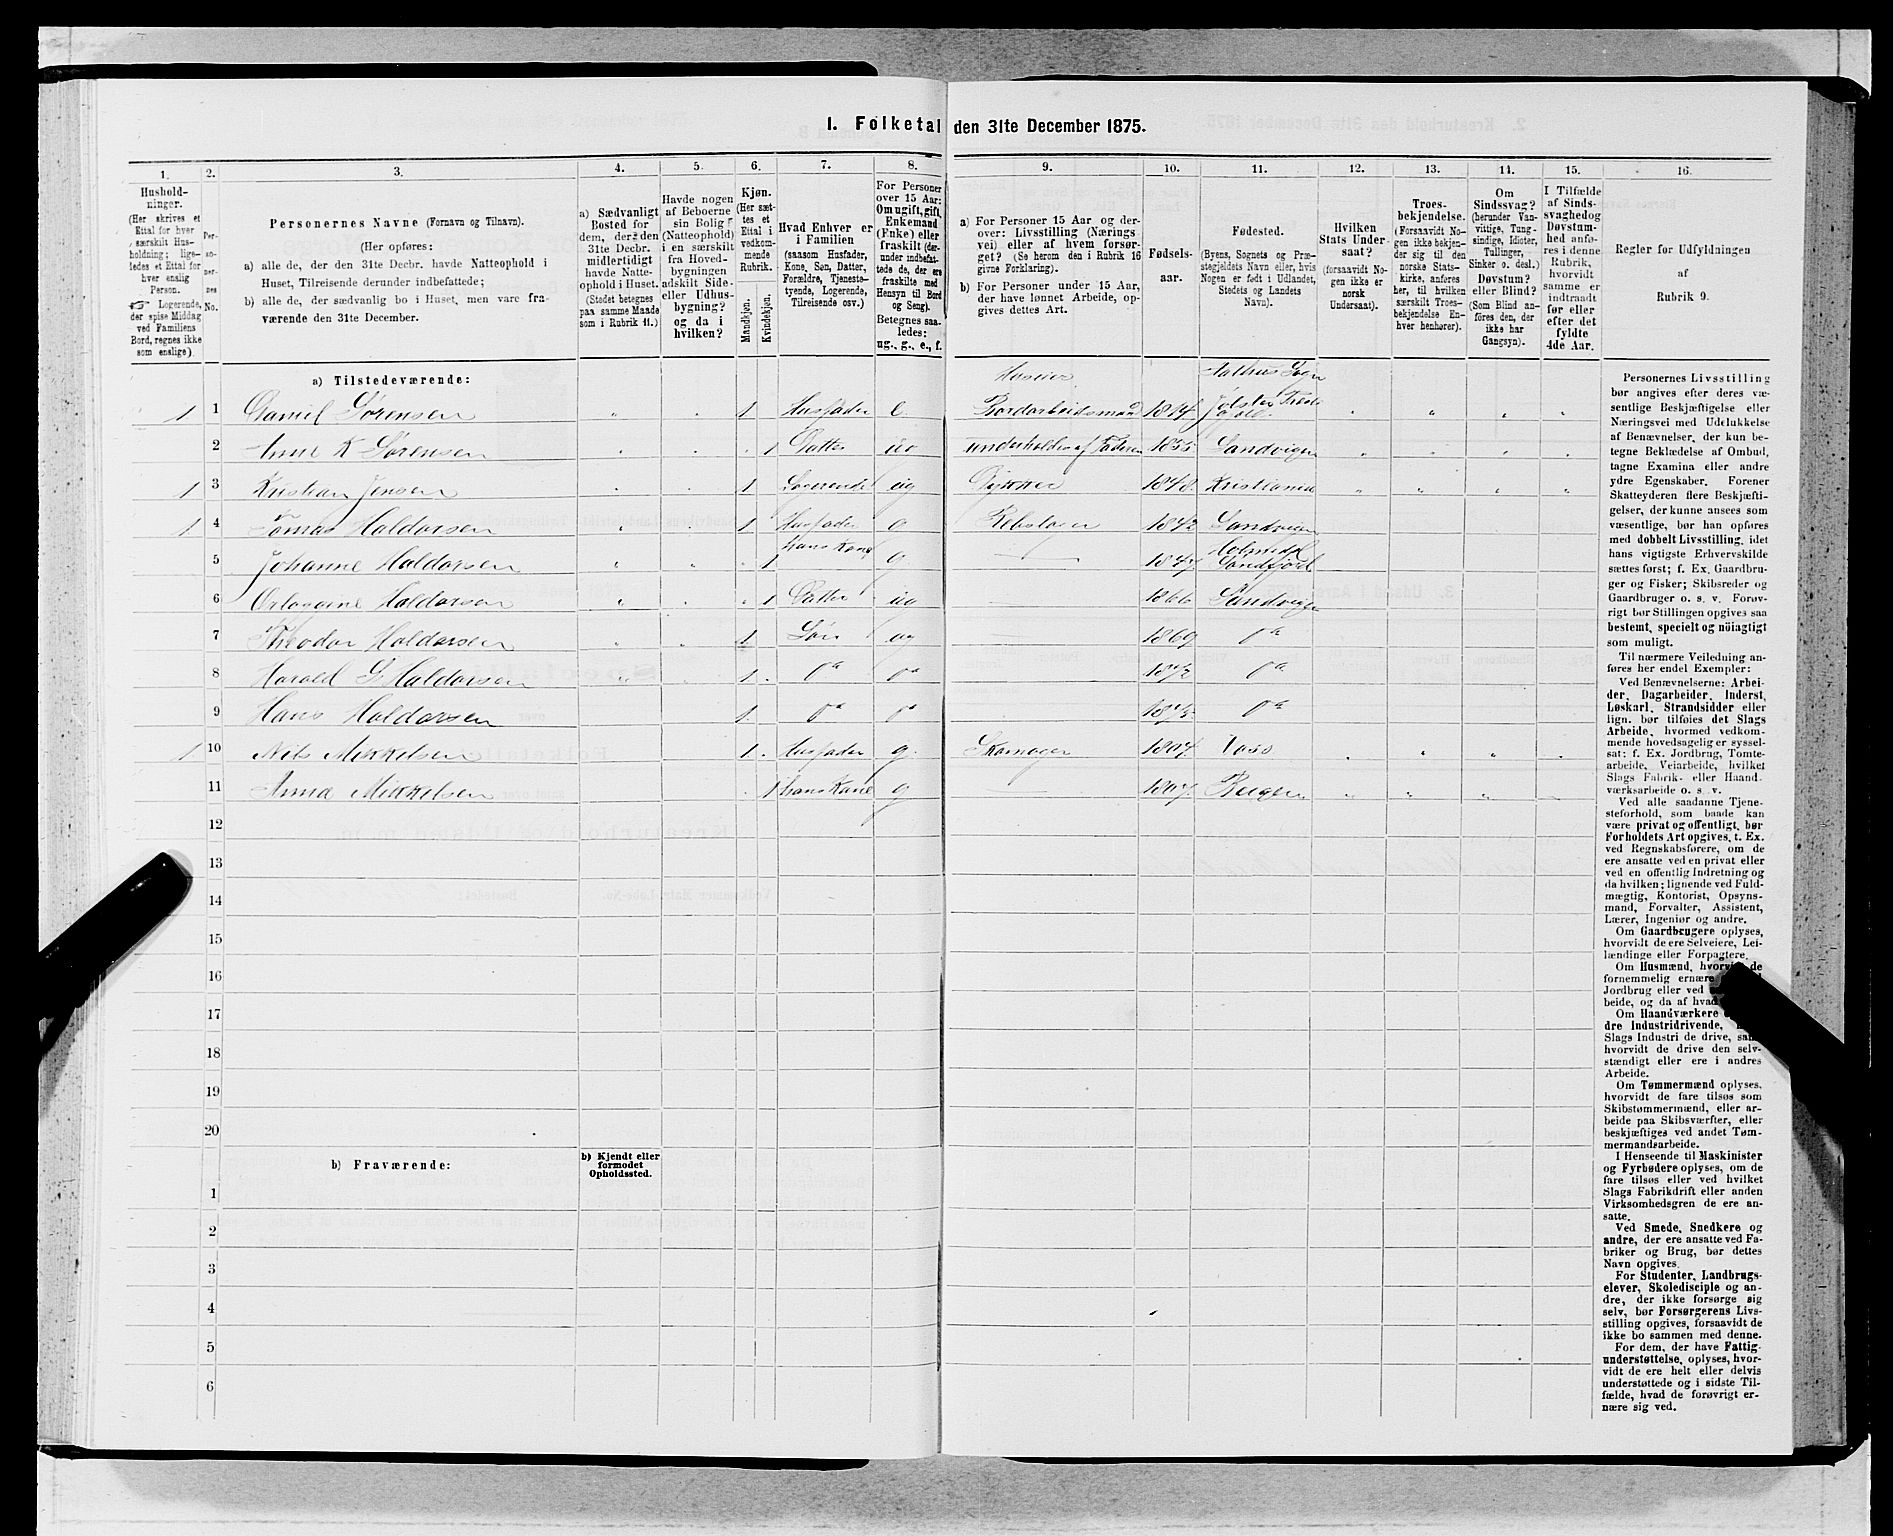 I. Folketal den 31te December 1875.
1. 2. 3. 4. 5. 6. 7. 8. 9. 10. 11. 12. 13. 14. 15. 16.
Hushold-
ninger.
(Her skrives et
Ettal for hver
særskilt Hus-
holdning; lige-
ledes et Ettal for
hver enslig
Person.
☞ Logerende,
der spise Middag
ved Familiens
Bord, regnes ikke
som enslige).
Per-
so-
ner-
nes
No.
Personernes Navne (Fornavn og Tilnavn).
(Her opføres:
a) alle de, der den 31te Decbr. havde Natteophold i
Huset, Tilreisende derunder indbefattede;
b) alle de, der sædvanlig bo i Huset, men vare fra-
værende den 31te December.
a) Sædvanligt
Bosted for
dem, der den
31te Decbr.
midlertidigt
havde Natte-
ophold i Huset.
(Stedet betegnes
paa samme Maade
som i Rubrik 11.)
Havde nogen
af Beboerne
sin Bolig
(Natteophold)
i en særskilt
fra Hoved-
bygningen
adskilt Side-
eller Udhus-
bygning?
og da i
hvilken?
Kjøn.
(Her sæt-
tes et
Ettal i
vedkom-
mende
Rubrik.
Mandkjøn.
Kvindekjøn.
Hvad Enhver er
i Familien
(saasom Husfader,
Kone, Søn, Datter,
Forældre, Tjeneste-
tyende, Logerende,
Tilreisende osv.)
For Personer
over 15 Aar:
Om ugift, gift,
Enkemand
(Enke) eller
fraskilt (der-
under indbefat-
tede de, der ere
fraskilte med
Hensyn til Bord
og Seng).
Betegnes saa-
ledes:
ug., g., e., f.
a) For Personer 15 Aar og der-
over: Livsstilling (Nærings-
vei) eller af hvem forsør-
get? (Se herom den i Rubrik 16
givne Forklaring).
b) For Personer under 15 Aar,
der have lønnet Arbeide, op-
gives dettes Art.
Fødsels-
aar.
Fødested.
(Byens, Sognets og Præ-
stegjeldets Navn eller, hvis
Nogen er født i Udlandet,
Stedets og Landets
Navn).
Hvilken
Stats Under-
saat?
(forsaavidt No-
gen ikke er
norsk
Undersaat).
Troes-
bekjendelse.
(Forsaavidt No-
gen ikke bekjen-
der sig til den
norske Stats-
kirke, anføres
her, til hvilken
særskilt Troes-
bekjendelse En-
hver henhører).
Om
Sindssvag?
(herunder Van-
vittige, Tung-
sindige, Idioter,
Tullinger,
Sinker o. desl.)
Døvstum?
eller Blind?
(Som Blind an-
føres den, der
ikke har
Gangsyn).
I Tilfælde
af Sinds-
svaghedog
Døvstum-
hed anfø-
res i denne
Rubrik,
hvorvidt
samme er
indtraadt
før eller
efter det
fyldte
4de Aar.
Regler for Udfyldningen
af
Rubrik 9.
a) Tilstedeværende:
1 1 Daniel Sørensen 1 Husfader e. 18
2 Anne K Sørensen 1 Datter underholdes af Faderen 1855 Sandvigen
1 3 Kristian Jensen 1 Logerende ug 1848 Kristiania
1 4 Tomas Haldorsen 1 Husfader g 1842 Sandvigen
5 Johanne Haldorsen 1 hans Kone g
6 Haldorsen 1 Datter ug 1866 Sandvigen
7 Theodor Haldorsen 1 Søn ug 1869
8 Harald G Haldorsen 1 1872
9 Hans Haldorsen 1
1 10 Nils Mikkelsen 1 Husfader g. Skomager Voss
11 Anna Mikkelsen 1 hans Kone g Bergen
12
13
14
15
16
17
18
19
20
b) Fraværende:
b) Kjendt eller
formodet
Opholdssted.
1
2
3
4
5
6
Personernes Livsstilling
bør angives efter deres væ-
sentlige Beskjæftigelse eller
Næringsvei med Udelukkelse
af Benævnelser, der kun be-
tegne Beklædelse af Ombud,
tagne Examina eller andre
ydre Egenskaber. Forener
Skatteyderen flere Beskjæfti-
gelser, der kunne ansees som
væsentlige, bør han opføres
med dobbelt Livsstilling, idet
hans vigtigste Erhvervskilde
sættes først; f. Ex. Gaardbru-
ger og Fisker; Skibsreder og
Gaardbruger o. s. v. Forøv-
rigt bør Stillingen opgives saa
bestemt, specielt og nöiagtigt
som muligt.
Til nærmere Veiledning an-
føres her endel Exempler:
Ved Benævnelserne: Arbei-
der, Dagarbeider, Inderst,
Løskarl, Strandsidder eller
lign. bør tilføies det Slags
Arbeide, hvormed vedkom-
mende hovedsagelig er syssel-
sat; f. Ex. Jordbrug, Tomte-
arbeide, Veiarbeide, hvilket
Slags Fabrik- eller Haand-
værksarbeide o. s. v.
Ved alle saadanne Tjene-
steforhold, som baade kan
være privat og offentligt, bør
Forholdets Art opgives, t. Ex.
ved Regnskabsførere, om de
ere ansatte ved en privat eller
ved en offentlig Indretning og
da hvilken; lignende ved Fuld-
mægtig, Kontorist, Opsyns-
mand, Forvalter, Assistent,
Lærer, Ingeniør og andre.
Om Gaardbrugere oplyses,
hvorvidt de ere Selveiere, Lei-
lændinge eller Forpagtere.
Om Husmænd, hvorvidt de
fornemmelig ernære
Jordbrug eller ved
beide, og da af hvad
Om Haandværkere
dre Industridrivende,
Slags Industri de drive, samt
hvorvidt de drive den selv-
stændigt eller ere i andres
Arbeide.
Om Tømmermænd oplyses,
hvorvidt de fare tilsøs som
Skibstømmermænd, eller ar-
beide paa Skibsværfter, eller
beskjæftiges ved andet Tøm-
mermandsarbeide.
I Henseende til Maskinister
og Fyrbødere oplyses, om de
fare tilsøs eller ved hvilket
Slags Fabrikdrift eller anden
Virksomhedsgren de ere an-
satte.
Ved Smede, Snedkere og
andre, der ere ansatte ved Fa-
briker og Brug, bør dettes
Navn opgives.
For Studenter, Landbrugs-
elever, Skoledisciple og an-
dre, der ikke forsørge sig
selv, bør Forsørgerens Livs-
stilling opgives, forsaavidt de
ikke bo sammen med denne.
For dem, der have Fattig-
understøttelse, oplyses, hvor-
vidt de ere helt eller delvis
understøttede og i sidste Til-
fælde, hvad de forøvrigt er-
nære sig ved.